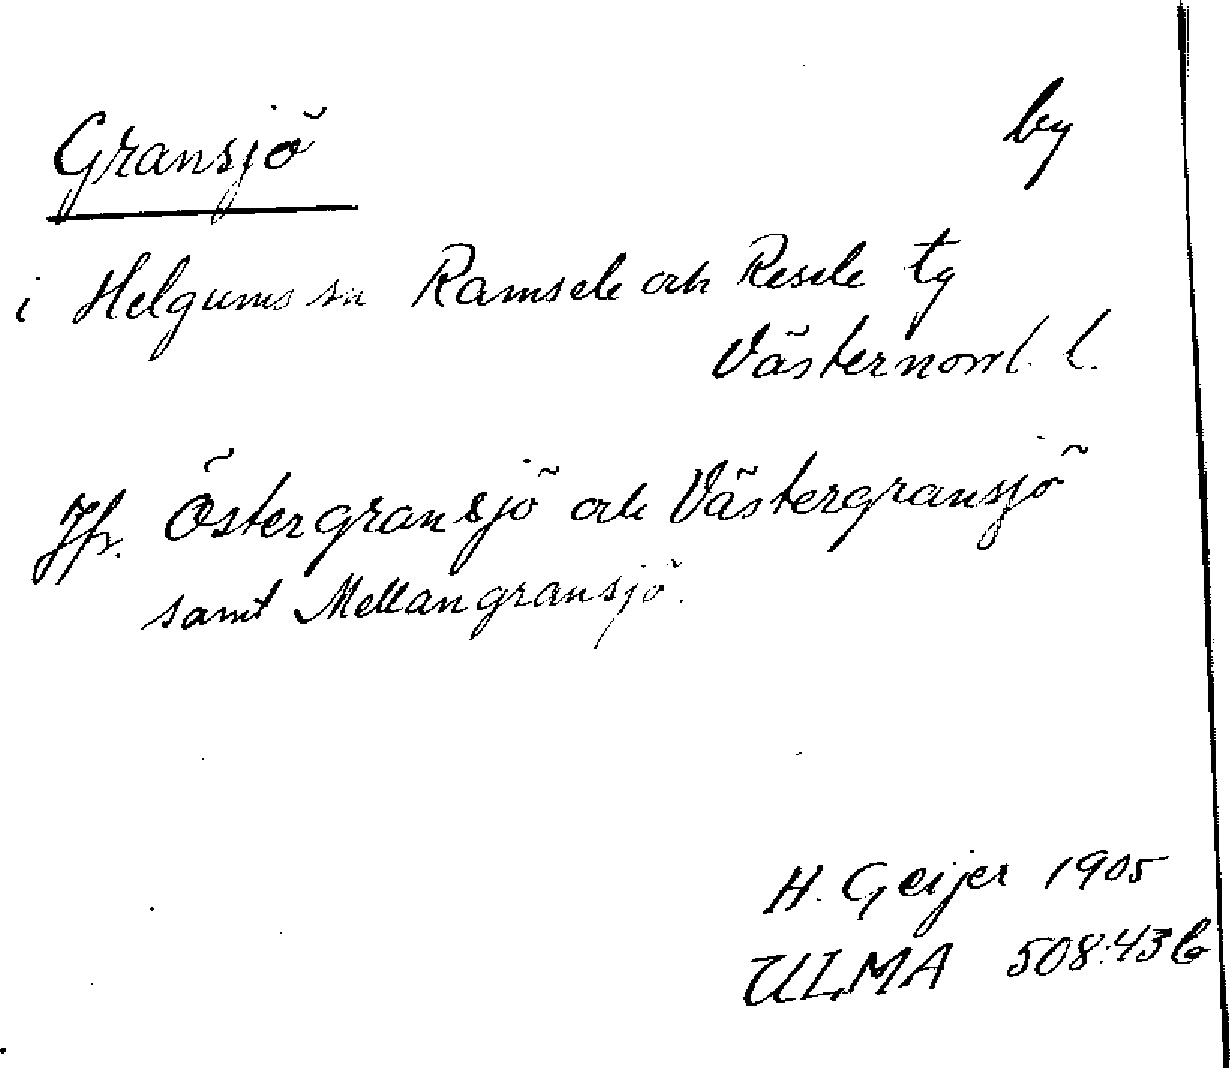 Gransjö by
i Helgums sn Ramsele och Resele tg
Västernorrl. l.
Jfr. Östergransjö och Västergransjö
samt Mellangransjö.
H. Geijer 1905
ULMA 508:43 b